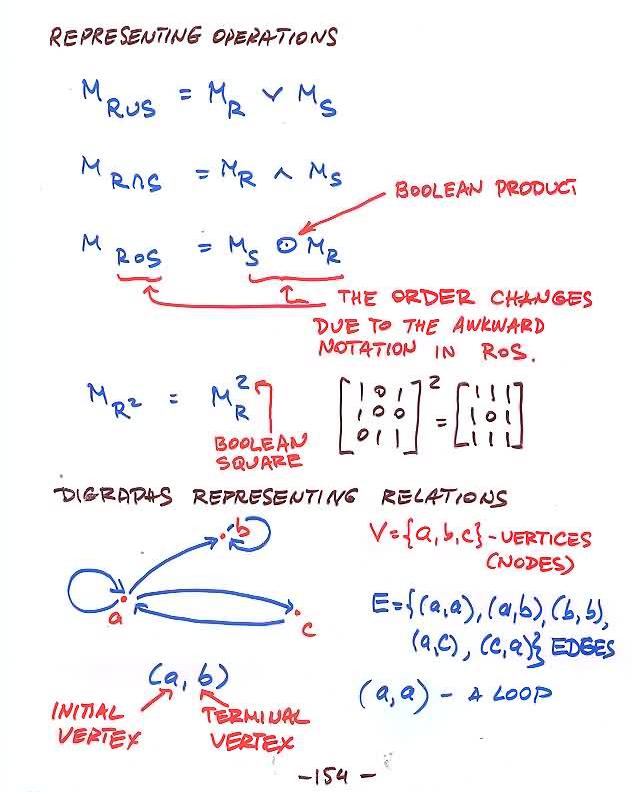 REPRESENTING OPERATIONS
M R∪S = M R ∨ M S
M R∩S = M R ∧ M S
BOOLEAN PRODUCT
M R∘S = M S ⊙ M R
THE ORDER CHANGES
DUE TO THE AWKWARD
NOTATION IN R∘S.
M R² = M R ²
[1 0 1]² = [1 1 1]
[1 0 0] [1 0 1]
[0 1 1] [1 1 1]
BOOLEAN
SQUARE
DIGRAPAS REPRESENTING RELATIONS
b
a
c
V={a,b,c}-VERTICES
(NODES)
E={(a,a),(a,b),(b,b),
(a,c), (c,a)} EDGES
(a, b)
INITIAL
VERTEX
TERMINAL
VERTEX
(a,a) - A LOOP
-154-